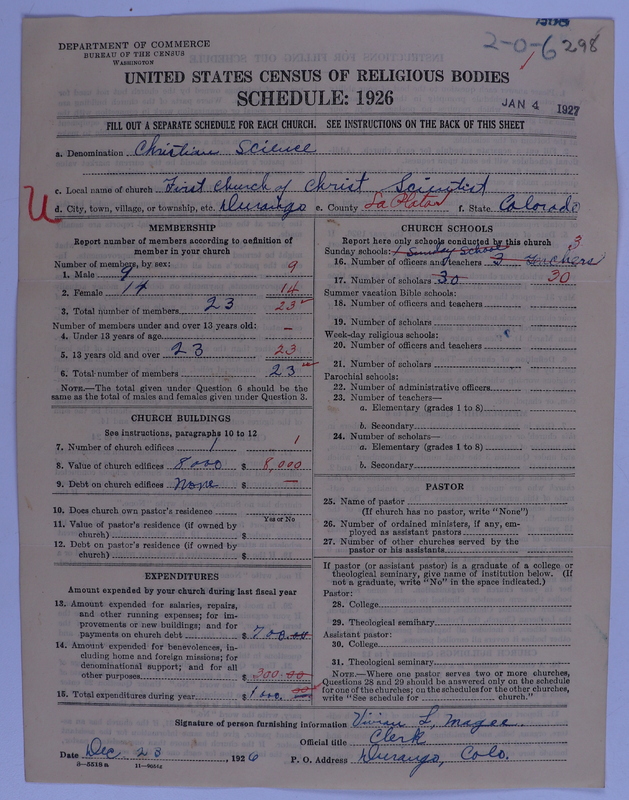 2-0-6 298
DEPARTMENT OF COMMERCE
BUREAU OF THE CENSUS
WASHINGTON
UNITED STATES CENSUS OF RELIGIOUS BODIES
SCHEDULE: 1926
JAN 4 1927
FILL OUT A SEPARATE SCHEDULE FOR EACH CHURCH. SEE INSTRUCTIONS ON THE BACK OF THIS SHEET
a. Denomination Christian Science
c. Local name of church First Church of Christ Scientist
U
d. City, town, village, or township, etc. Durango e. County La Plata f. State Colorado
MEMBERSHIP
Report number of members according to definition of
member in your church
Number of members, by sex:
1. Male 9 9
2. Female 14 14
3. Total number of members 23 23
Number of members under and over 13 years old:
4. Under 13 years of age —
5. 13 years old and over 23 23
6. Total number of members 23
NOTE.—The total given under Question 6 should be the
same as the total of males and females given under Question 3.
CHURCH BUILDINGS
See instructions, paragraphs 10 to 12
7. Number of church edifices 1 1
8. Value of church edifices 8000 $ 8,000
9. Debt on church edifices None $ —
10. Does church own pastor's residence
Yes or No
11. Value of pastor's residence (if owned by
church) $
12. Debt on pastor's residence (if owned by
church) $
EXPENDITURES
Amount expended by your church during last fiscal year
13. Amount expended for salaries, repairs,
and other running expenses; for im-
provements or new buildings; and for
payments on church debt $ 700.00
14. Amount expended for benevolences, in-
cluding home and foreign missions; for
denominational support; and for all
other purposes $ 300.00
15. Total expenditures during year $ 1000.00
CHURCH SCHOOLS
Report here only schools conducted by this church
Sunday schools: 1 Sunday School 3
16. Number of officers and teachers 3 teachers
17. Number of scholars 30 30
Summer vacation Bible schools:
18. Number of officers and teachers
19. Number of scholars
Week-day religious schools:
20. Number of officers and teachers
21. Number of scholars
Parochial schools:
22. Number of administrative officers
23. Number of teachers—
a. Elementary (grades 1 to 8)
b. Secondary
24. Number of scholars—
a. Elementary (grades 1 to 8)
b. Secondary
PASTOR
25. Name of pastor
(If church has no pastor, write "None")
26. Number of ordained ministers, if any, em-
ployed as assistant pastors
27. Number of other churches served by the
pastor or his assistants
If pastor (or assistant pastor) is a graduate of a college or
theological seminary, give name of institution below. (If
not a graduate, write "No" in the space indicated.)
Pastor:
28. College
29. Theological seminary
Assistant pastor:
30. College
31. Theological seminary
NOTE.—Where one pastor serves two or more churches,
Questions 28 and 29 should be answered only on the schedule
for one of the churches; on the schedules for the other churches,
write "See schedule for church."
Signature of person furnishing information Vivian L. Magee
Official title Clerk
Date Dec. 23, 1926 P. O. Address Durango, Colo.